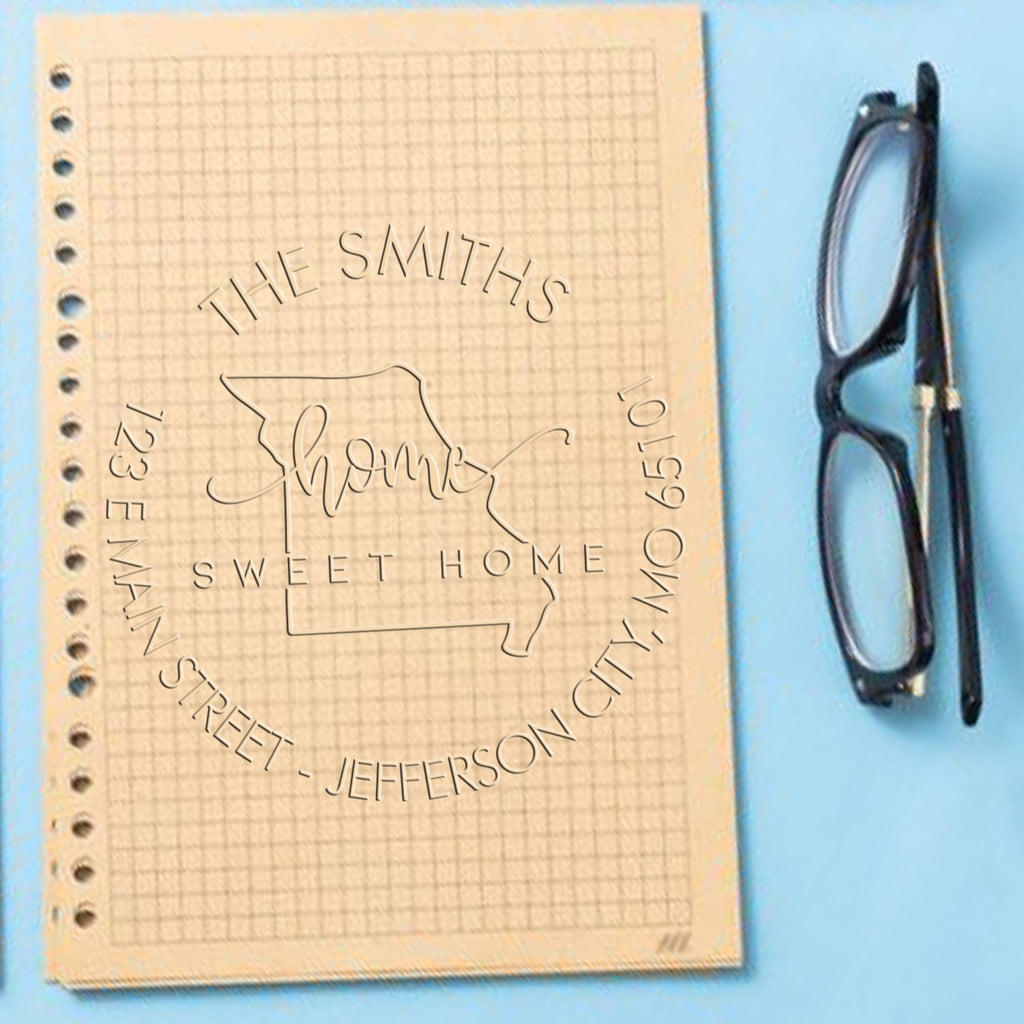 THE SMITHS
home
SWEET HOME
123 E MAIN STREET - JEFFERSON CITY, MO 65101